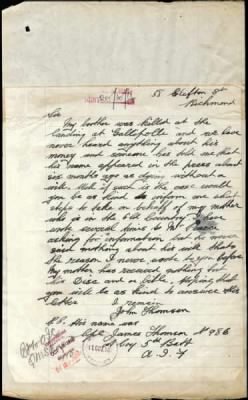 58 Clifton St
Richmond
Sir
My brother was killed at the
landing at Gallipolli and we have
never heard anything about his
money and someone has told us that
his name appeared in the press about
six months ago as dying without a
will. But if such is the case would
you be as kind as inform me which
steps to take on behalf of my mother
who is in the old Country I have
wrote several times to Mr
asking for information but he never
said anything about his will thats
the reason I never wrote to you before
My mother has received nothing but
his Disc and a bible, Hoping that
you will be as kind to answer this
letter I remain
John Thomson
P.S. His name was
Cpl James Thomson N 986
Coy 5th Batt
A. I. F